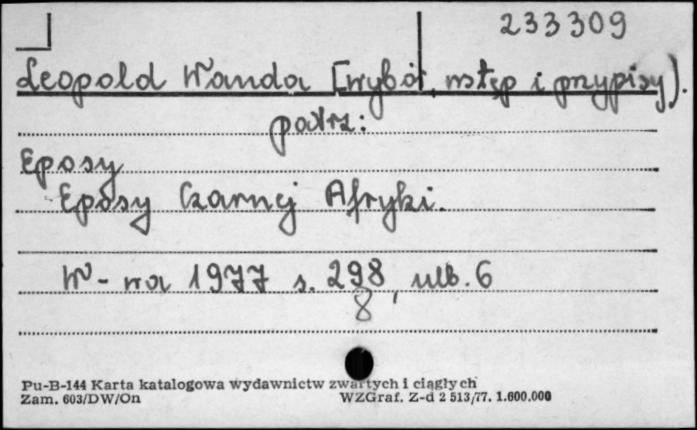 233309
Leopold Wanda [wybór, wstęp i przypisy).
patrz:
Eposy
Eposy Czarnej Afryki.
W-wa 1977 s. 298, ulb. 6
8
Pu-B-144 Karta katalogowa wydawnictw zwartych i ciągłych
Zam. 603/DW/On WZGraf. Z-d 2 513/77. 1.600.000